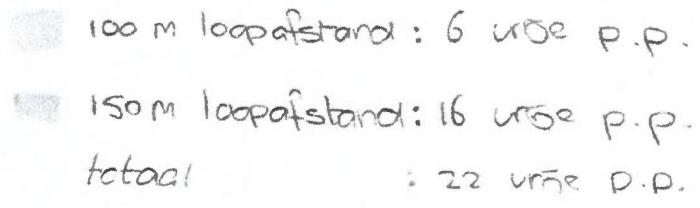 100 m loopafstand : 6 vrije p.p.
150 m loopafstand : 16 vrije p.p.
totaal : 22 vrije p.p.